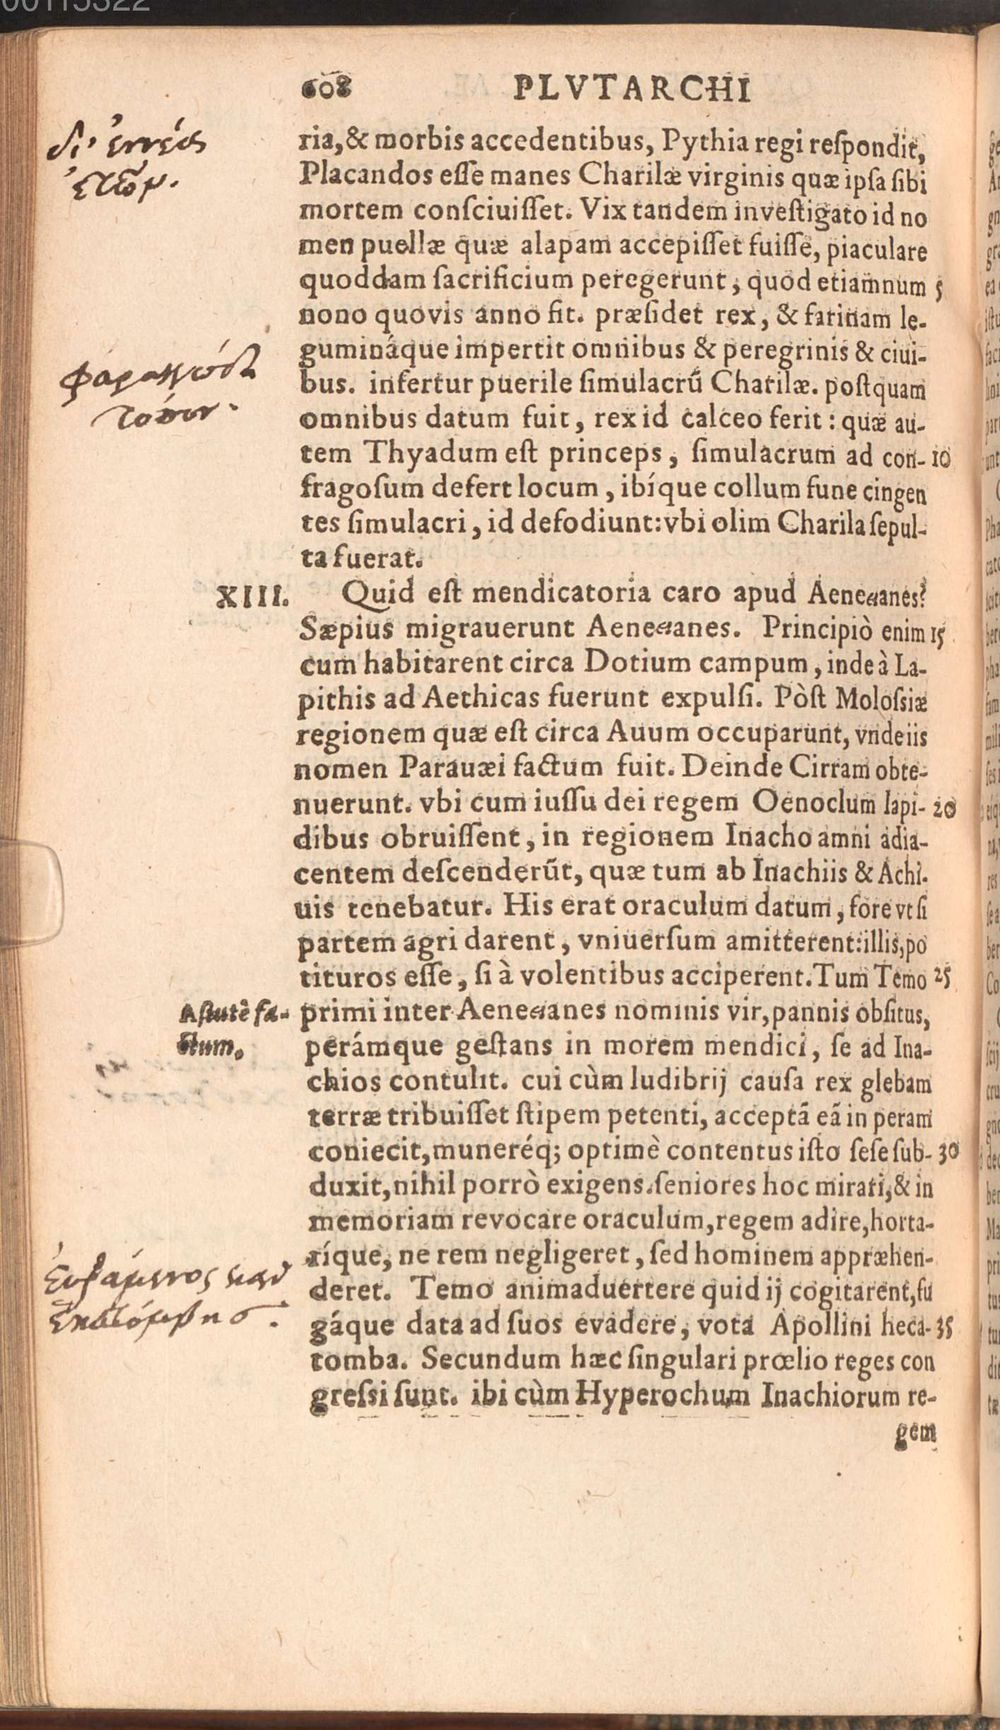 00115322
608 PLVTARCHI
δι' ἐννέα
ἐτῶν.
ria, & morbis accedentibus, Pythia regi reſpondit,
Placandos eſſe manes Charilæ virginis quæ ipſa ſibi
mortem conſciuiſſet. Vix tandem inveſtigato id no
men puellæ quæ alapam accepiſſet fuiſſe, piaculare
quoddam ſacrificium peregerunt, quod etiamnum 5
nono quovis anno fit. præſidet rex, & farinam le-
gumináque impertit omnibus & peregrinis & ciui-
φαραγγώδη
τόπον.
bus. infertur puerile ſimulacrũ Charilæ. poſtquam
omnibus datum fuit, rex id calceo ferit: quæ au-
tem Thyadum eſt princeps, ſimulacrum ad con- 10
fragoſum defert locum, ibíque collum fune cingen
tes ſimulacri, id defodiunt: vbi olim Charila ſepul-
ta fuerat.
XIII. Quid eſt mendicatoria caro apud Aeneanes?
Sæpius migrauerunt Aeneanes. Principiò enim 15
cum habitarent circa Dotium campum, inde à La-
pithis ad Aethicas fuerunt expulſi. Pòſt Moloſsiæ
regionem quæ eſt circa Auum occuparunt, vnde iis
nomen Parauæi factum fuit. Deinde Cirram obte-
nuerunt. vbi cum iuſſu dei regem Oenoclum lapi- 20
dibus obruiſſent, in regionem Inacho amni adia-
centem deſcenderũt, quæ tum ab Inachiis & Achi-
uis tenebatur. His erat oraculum datum, fore vt ſi
partem agri darent, vniuerſum amitterent: illis, po
tituros eſſe, ſi à volentibus acciperent. Tum Temo 25
Aſtutè fa-
ctum.
primi inter Aeneanes nominis vir, pannis obſitus,
perámque geſtans in morem mendici, ſe ad Ina-
chios contulit. cui cùm ludibrij cauſa rex glebam
terræ tribuiſſet ſtipem petenti, acceptâ eâ in peram
coniecit, muneréq; optimè contentus iſto ſeſe ſub- 30
duxit, nihil porrò exigens. ſeniores hoc mirati, & in
memoriam revocare oraculum, regem adire, horta-
ríque, ne rem negligeret, ſed hominem appræhen-
εὐξάμενος
ἑκατόμβης.
deret. Temo animaduertere quid ij cogitarent, fu
gáque data ad ſuos evadere, vota Apollini heca- 35
tomba. Secundum hæc ſingulari prœlio reges con
greſsi ſunt. ibi cùm Hyperochum Inachiorum re-
gem